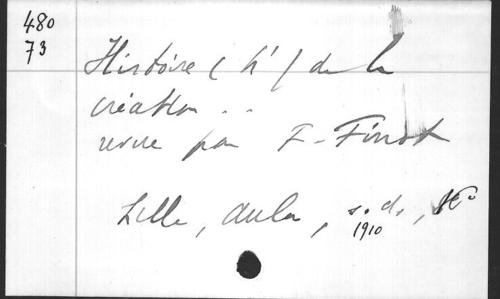 480
73
Histoire (L') de la
création ..
revue par F. Finot
Lille, , s.d., 8°
1910